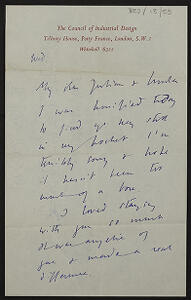 The Council of Industrial Design
Tilbury House, Petty France, London, S.W.1
Whitehall 6322
Wed.
My dear
I was horrified today
to find
in my pocket I'm
terribly sorry & hope
I haven't been too
much of a bore
I loved staying
with you so much
it was angelic of
you & made a real
difference.